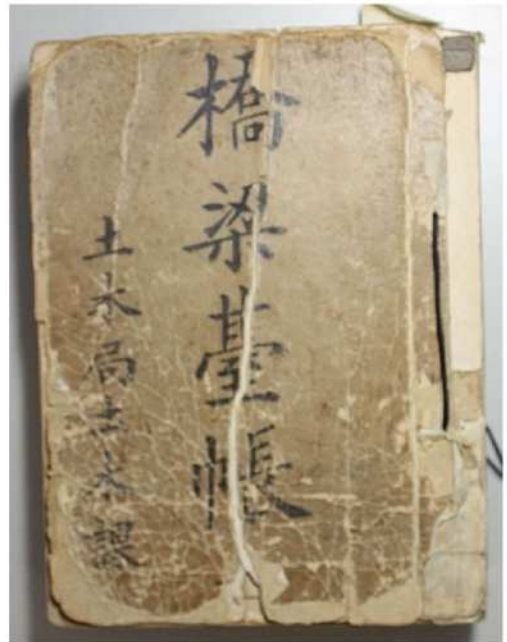 橋梁臺帳
土木局土木課